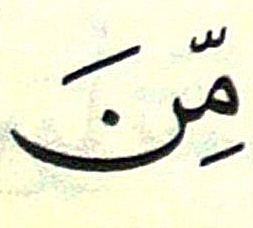 مِّنَ